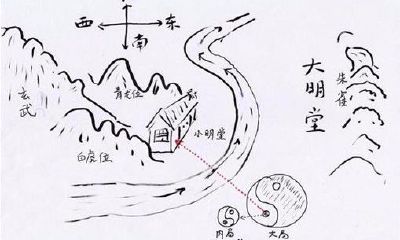 西
东
南
大明堂
朱雀
玄武
青龙位
小明堂
白虎位
内局
大局